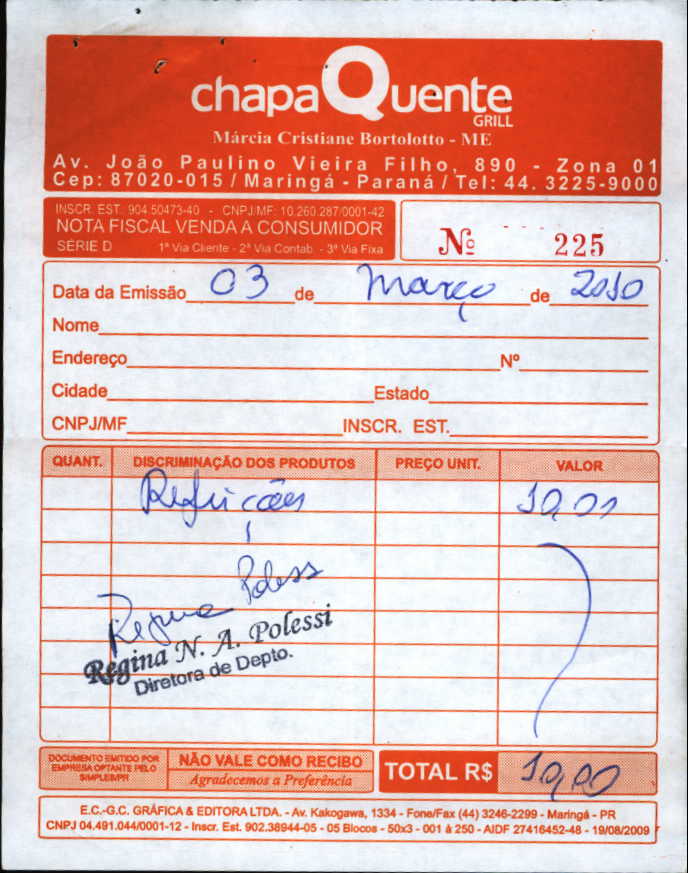 chapaQuente
GRILL
Márcia Cristiane Bortolotto - ME
Av. João Paulino Vieira Filho, 890 - Zona 01
Cep: 87020-015 / Maringá - Paraná / Tel: 44. 3225-9000
INSCR. EST. 904.50473-40 - CNPJ/MF: 10.260.287/0001-42
NOTA FISCAL VENDA A CONSUMIDOR
SÉRIE D 1ª Via Cliente - 2ª Via Contab. - 3ª Via Fixa
Nº 225
Data da Emissão 03 de Março de 2010
Nome
Endereço Nº
Cidade Estado
CNPJ/MF INSCR. EST.
QUANT. DISCRIMINAÇÃO DOS PRODUTOS PREÇO UNIT. VALOR
Refeições 10,00
Regina Polessi
Regina N. A. Polessi
Diretora de Depto.
DOCUMENTO EMITIDO POR
EMPRESA OPTANTE PELO
SIMPLES/PR
NÃO VALE COMO RECIBO
Agradecemos a Preferência
TOTAL R$ 10,00
E.C.-G.C. GRÁFICA & EDITORA LTDA. - Av. Kakogawa, 1334 - Fone/Fax (44) 3246-2299 - Maringá - PR
CNPJ 04.491.044/0001-12 - Inscr. Est. 902.38944-05 - 05 Blocos - 50x3 - 001 à 250 - AIDF 27416452-48 - 19/08/2009